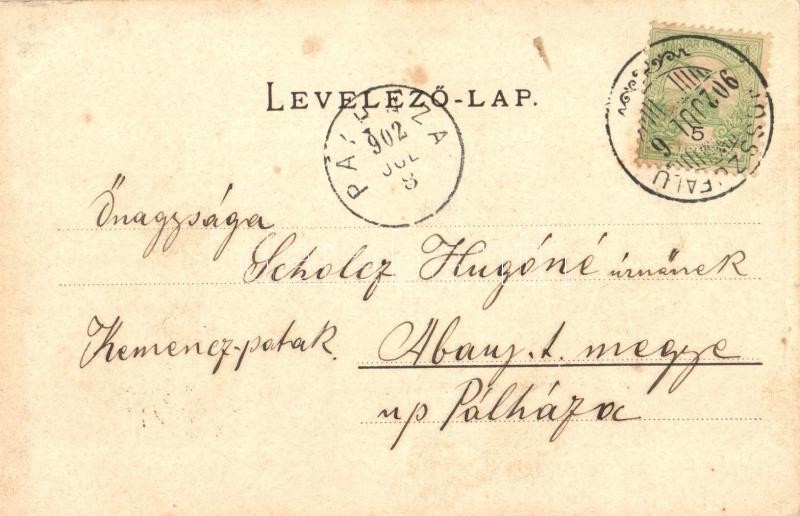 LEVELEZŐ-LAP.
902 JUL 8
902 JUL 6
5
Őnagysága
Scholcz Hugóné úrnőnek
Kemencz-patak. Abauj. t. megye
up Pálháza